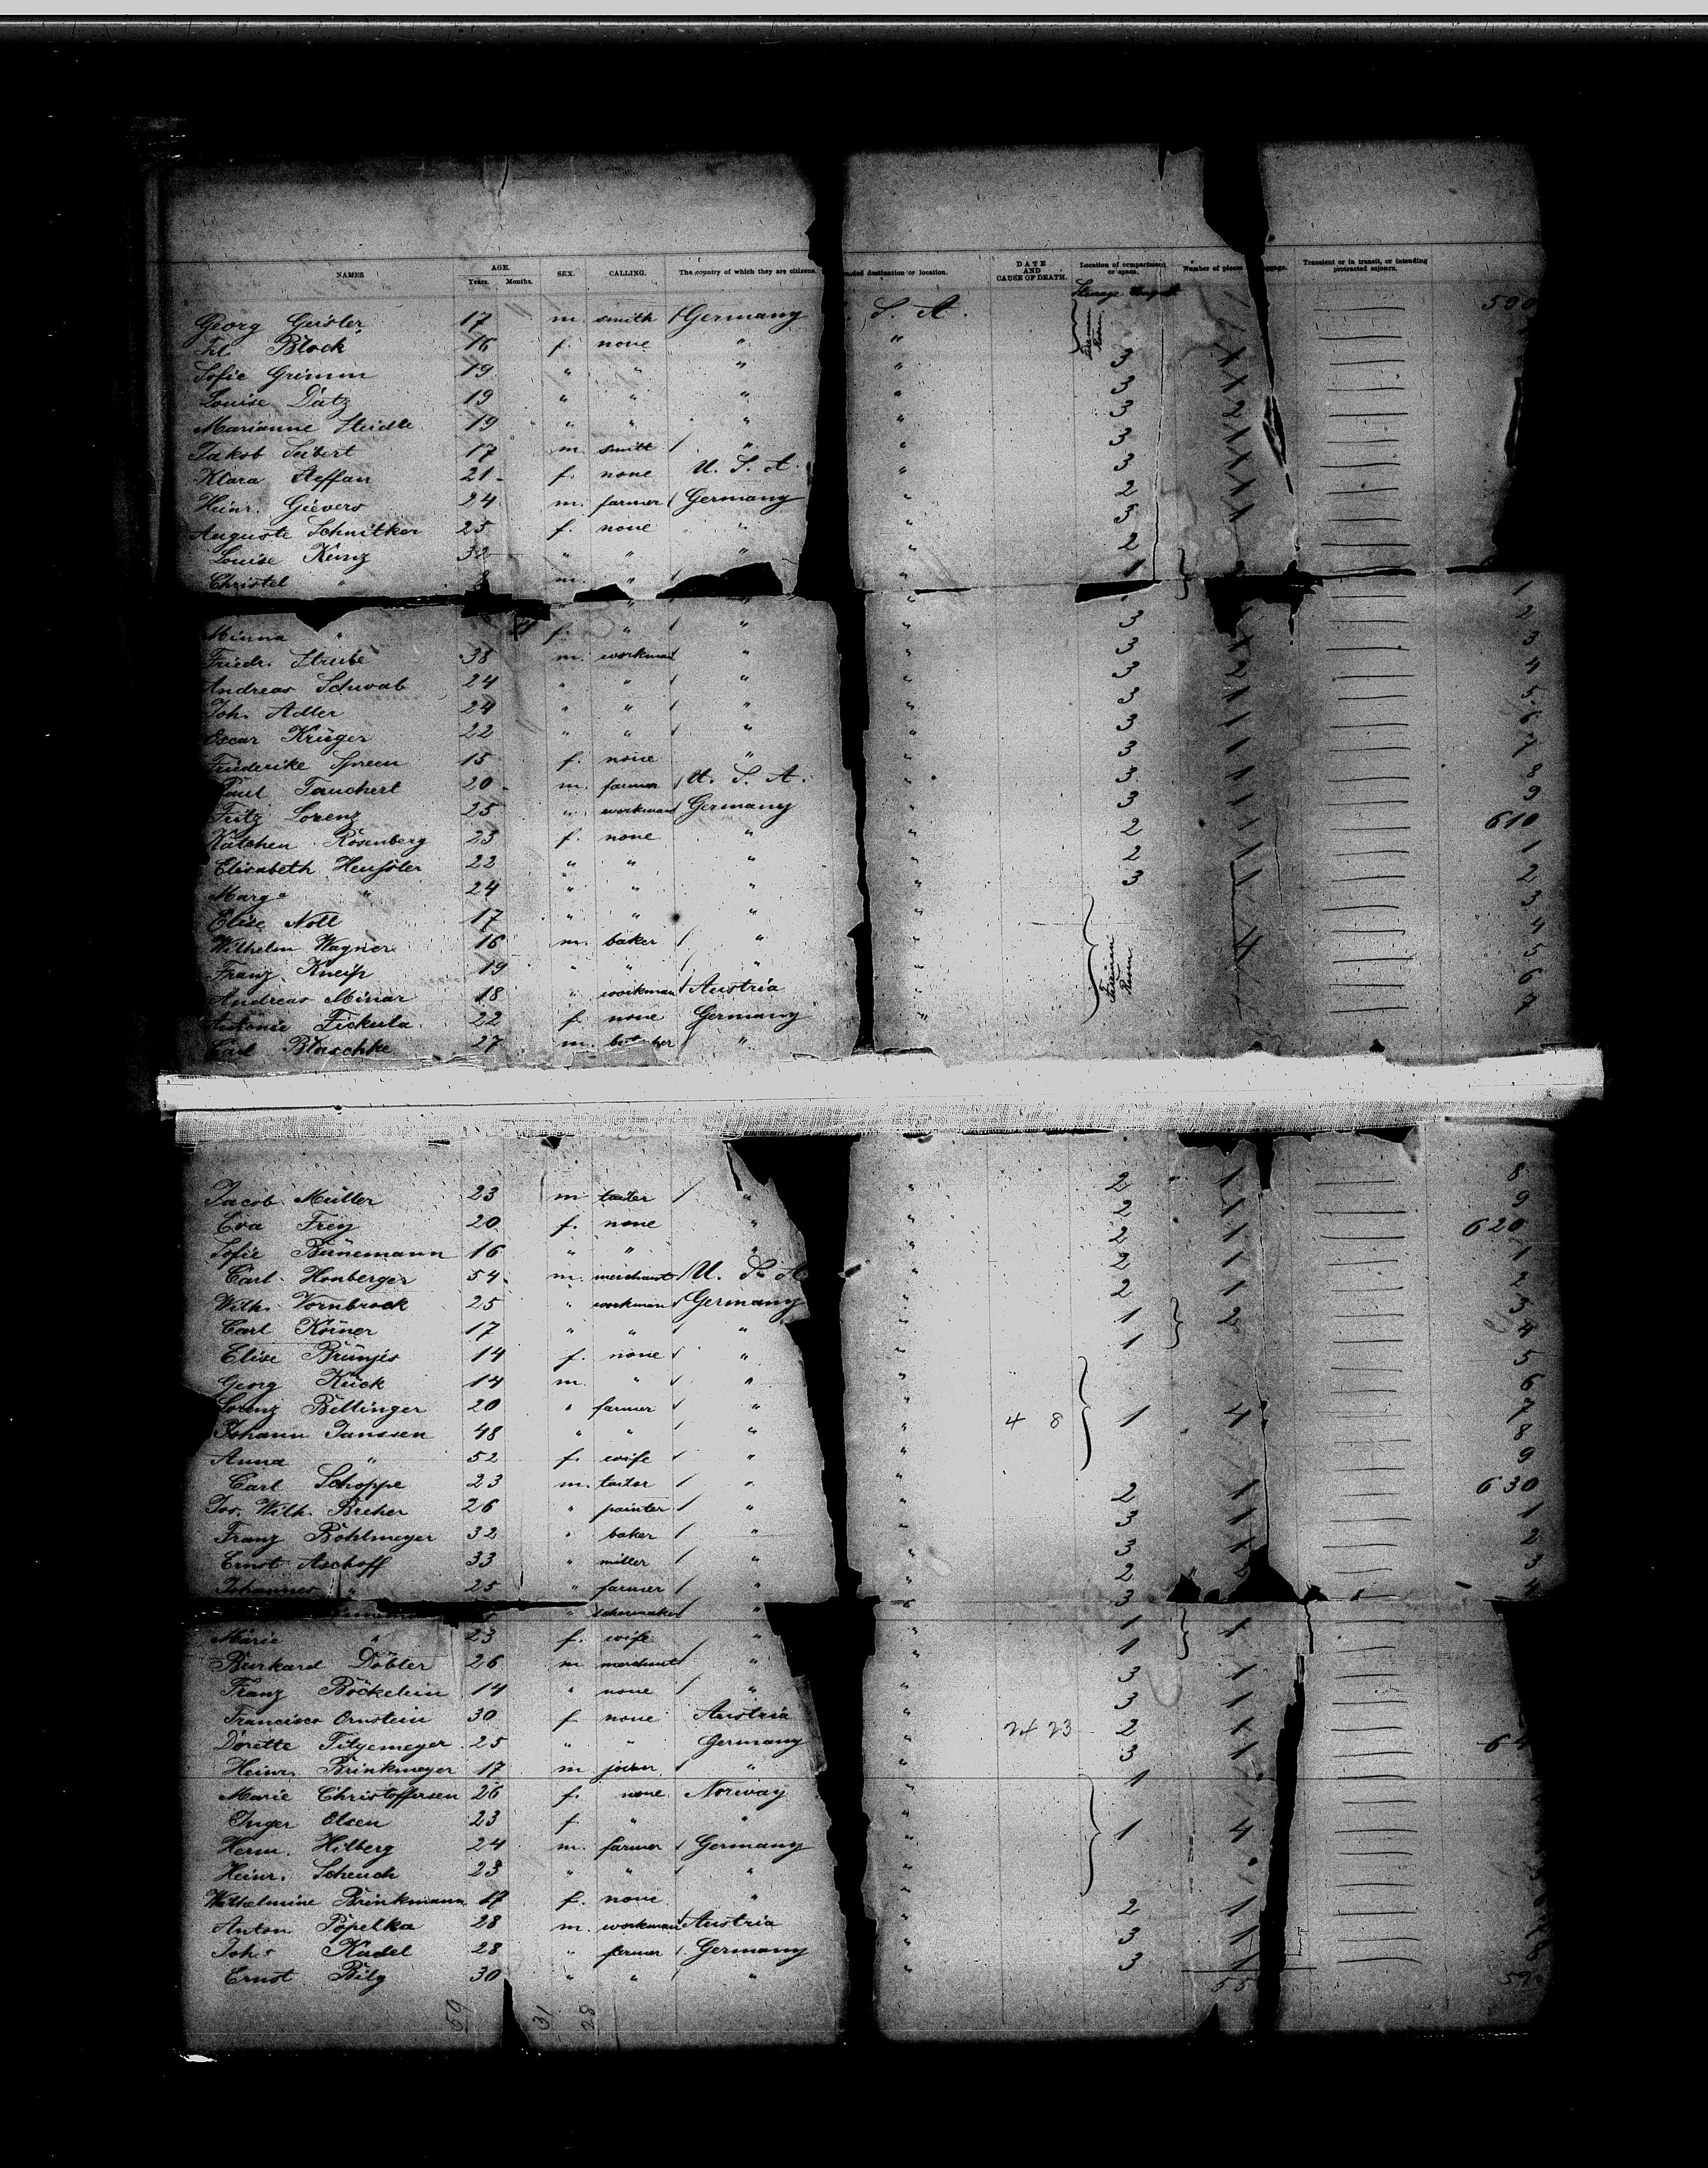 NAMES AGE. Years. Months. SEX. CALLING. The country of which they are citizens. destination or location. DATE AND CAUSE OF DEATH. Location of compartment or space. Number of pieces Transient or in transit, or intending protracted sojourn.
Georg Geisler 17 m. smith Germany S. A.
Block 16 f. none " "
Sofie Grimm 19 " " " " 3
Louise Datz 19 " " " " 3
Marianne Heidle 19 " " " " 3
Jakob Seibert 17 m. smith " " 3
Klara Steffan 21 f. none U. S. A. " 3
Heinr. Gievers 24 m. farmer Germany " 2
Auguste Schnitker 25 f. none " " 3
Louise Kunz 32 " " " " 2
Christel " 8 m. " " 1
Minna " f. " " " 3
Friedr. Strube 38 m. workman " " 3
Andreas Schwab 24 " " " " 3
Joh. Adler 24 " " " " 3
Oscar Krüger 22 " " " " 3
Friederike Spreen 15 f. none " " 3
Paul Tauchert 20 m. farmer U. S. A. " 3
Fritz Lorenz 25 " workman Germany " 3
Kätchen Rosenberg 23 f. none " " 2 610
Elisabeth Heussler 22 " " " " 2 1
Marg. " 24 " " " " 3 2
Elise Noll 17 " " " " 3
Wilhelm Wagner 16 m. baker " " 4
Franz Kneip 19 " " " " 5
Andreas Minar 18 " workman Austria " 6
Antonie Fickula 22 f. none Germany " 7
Carl Blaschke 27 m. "
Jacob Müller 23 m " " 2 1 8
Eva Frey 20 f. none " " 2 1 9
Sofie Bünemann 16 " " " " 2 1 620
Carl Honberger 54 m. merchant U. S. A " 2 1 1
Wilh. Vornbrock 25 " workman Germany " 2 1 2
Carl Körner 17 " " " " 1 3
Elise Brünjes 14 f. none " " 1 4
Georg Kück 14 m. " " " 5
Lorenz Bellinger 20 " farmer " " 6
Johann Janssen 48 " " " " 4 8 1 4 7
Anna " 52 f. wife " " 8
Carl Schoppe 23 m. tailor " " 9
Jos. Wilh. Breher 26 " painter " " 2 1 630
Franz Bohlmeyer 32 " baker " " 3 1 1
Ernst Aschoff 33 " miller " " 3 1 2
Johannes " 25 " farmer " " 2 3
" " " 3 4
Marie " 23 f. wife " " 1
Burkard Döbler 26 m merchant " " 1
Franz Böckelein 14 " none " " 3 1
Francisca Ornstein 30 f none Austria " 3 1
Dorette Tilgemeyer 25 " " Germany " 24 23 2 1
Heinr. Brinkmeyer 17 m joiner " " 3 1
Marie Christoffersen 26 f. none Norway " 1
Inger Olsen 23 f " " "
Herm. Hilberg 24 m. farmer Germany " 1 4
Heinr. Scheuch 23 " " " "
Wilhelmine Brinkmann 17 f. none " "
Anton Popelka 28 m. workman Austria " 2 1
Joh. Kadel 28 " farmer Germany " 3 1
Ernst Bilg 30 " " " " 3 1
55
59 31 28